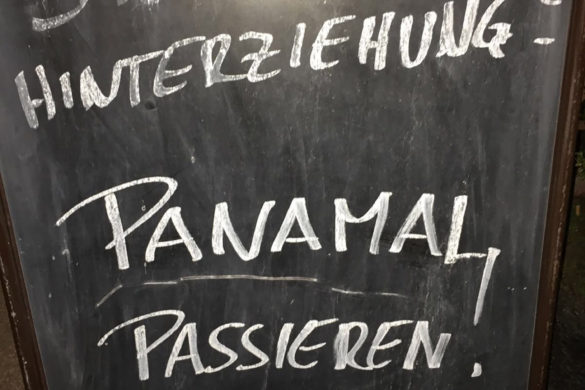 HINTERZIEHUNG -
PANAMAL
PASSIEREN!